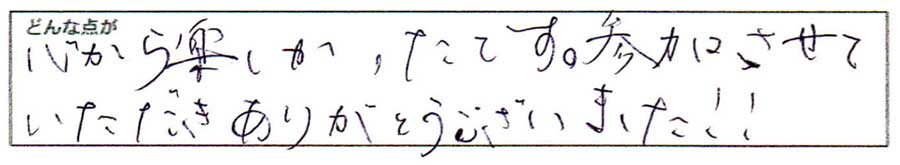 どんな点が
心から楽しかったてす。参加させて
いただきありがとうございました!!